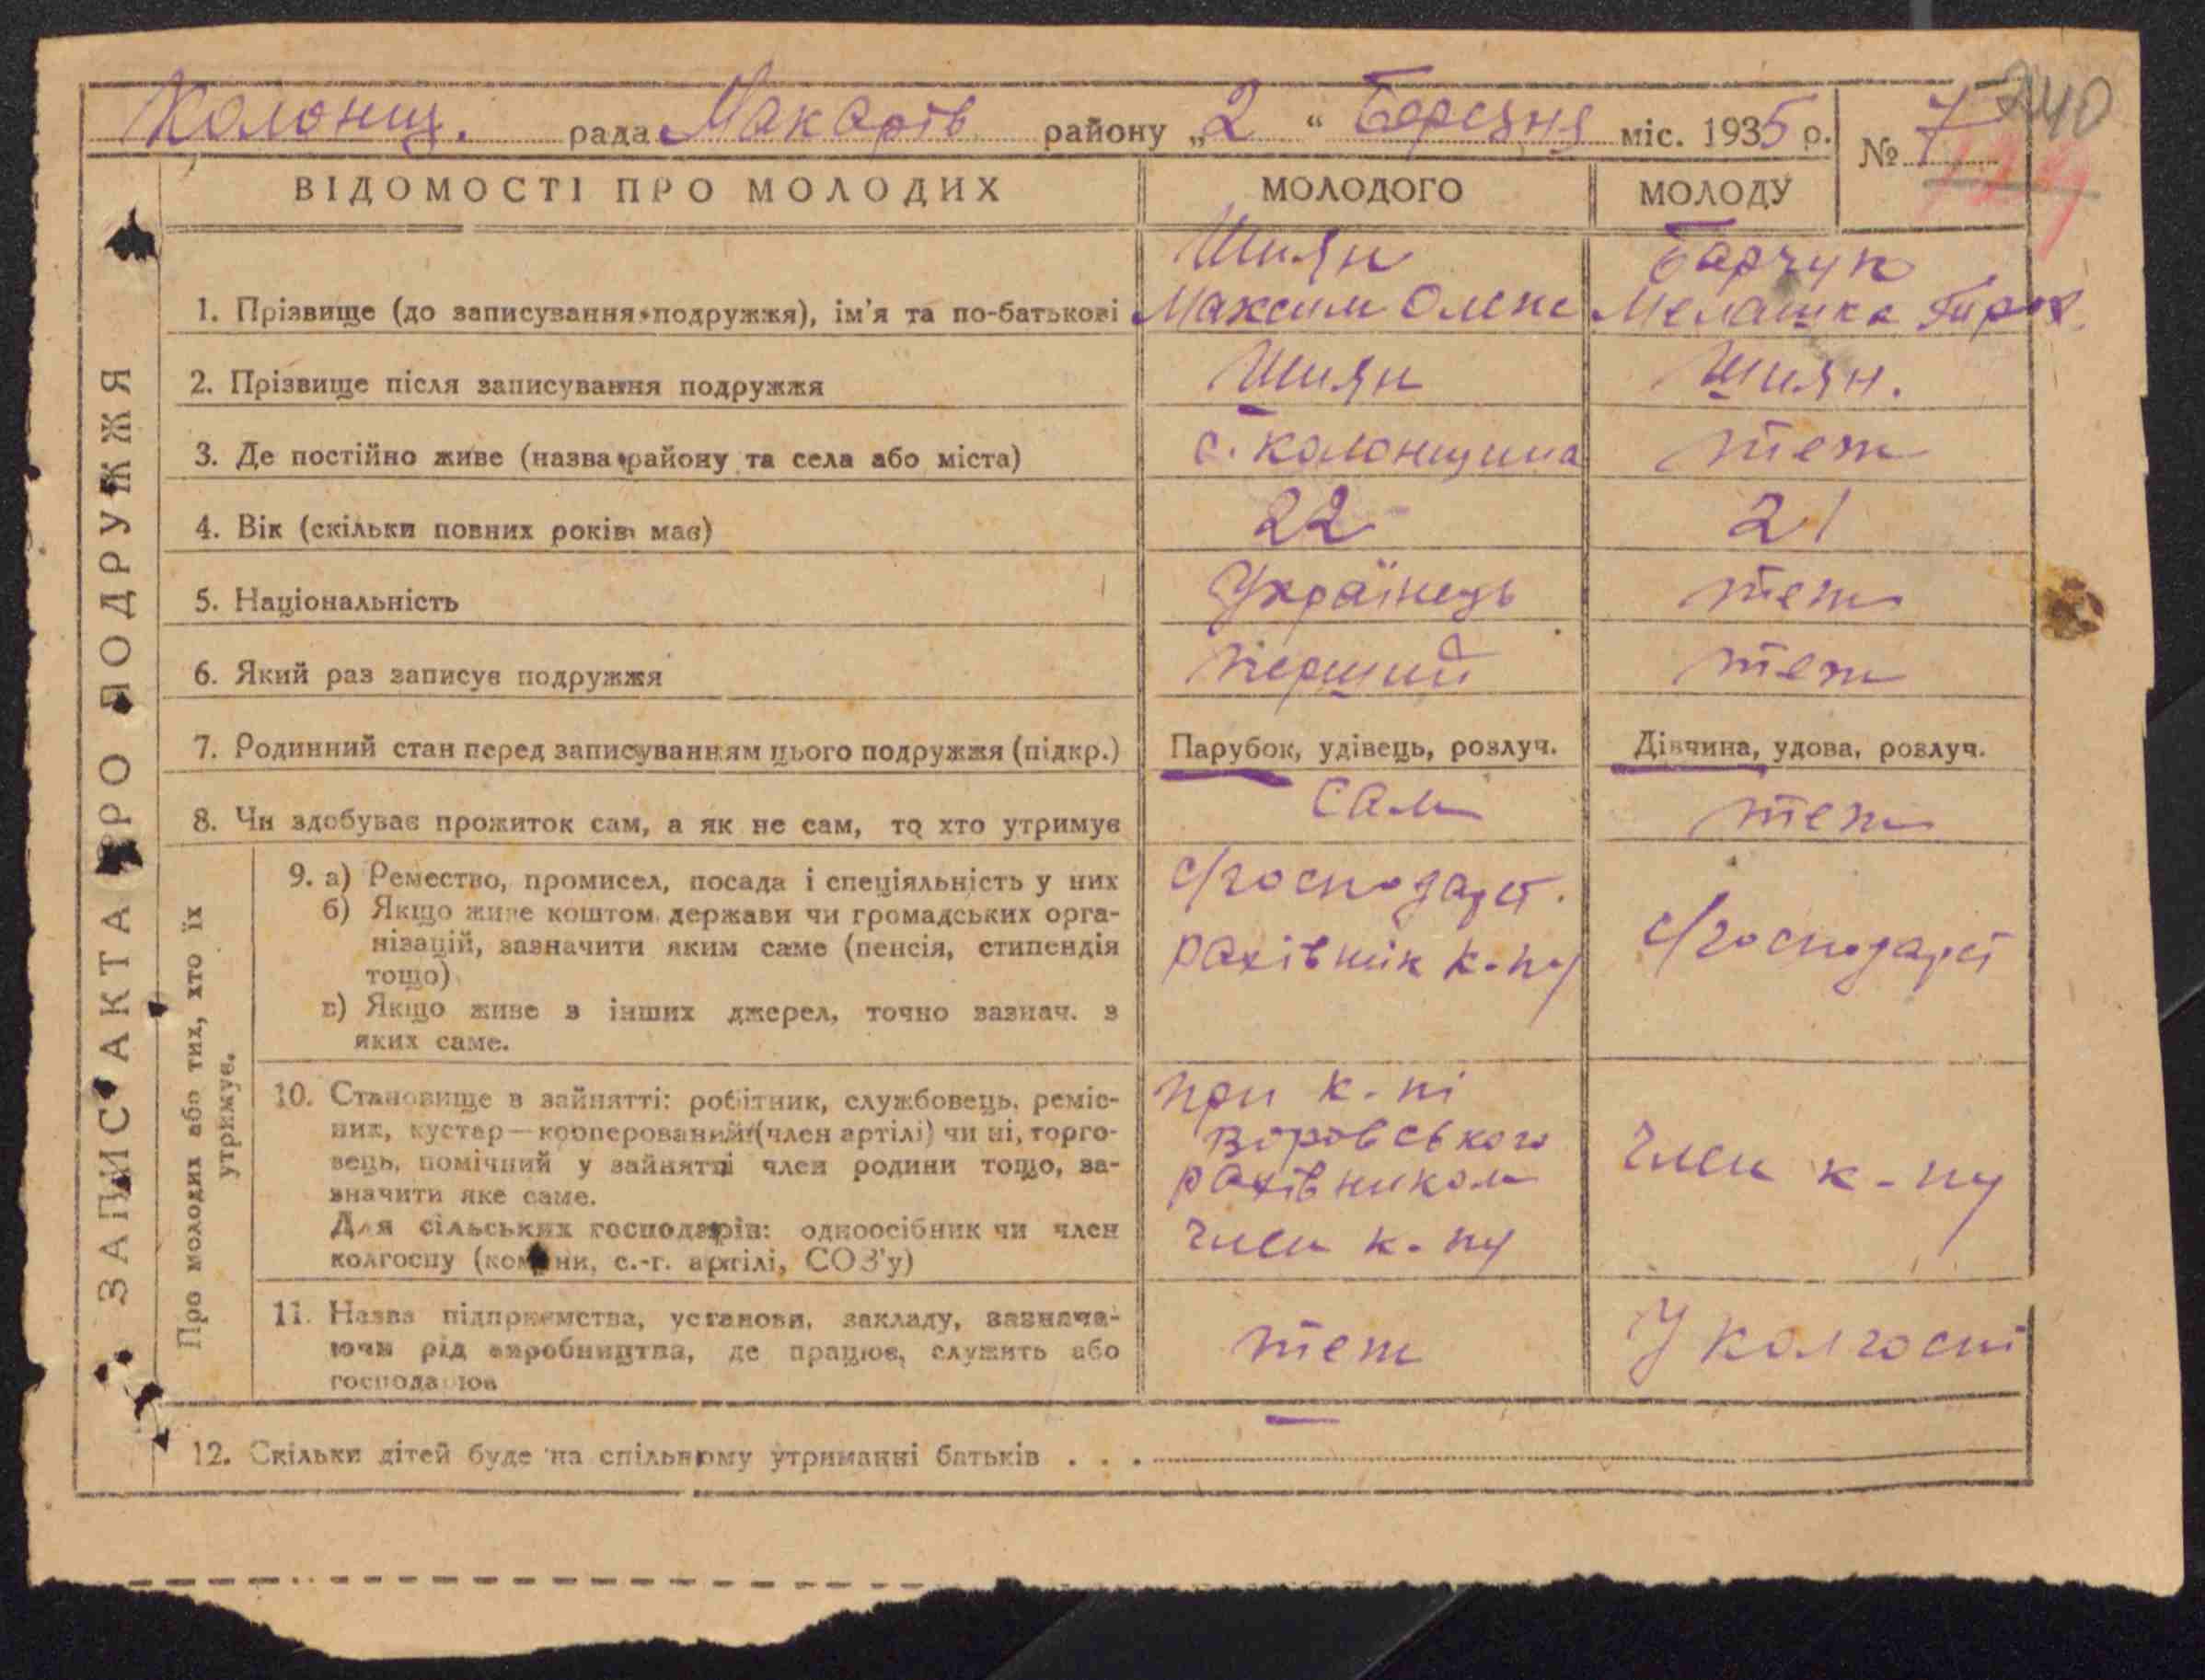 Колонщ. рада Макарів району „2“ Березня міс. 1935 р.
№ 7
740
ВІДОМОСТІ ПРО МОЛОДИХ
МОЛОДОГО
МОЛОДУ
ЗАПИС АКТА ПРО ПОДРУЖЖЯ
1. Прізвище (до записування подружжя), ім'я та по-батькові
Шиян
Максим Олекс
Барчук
Мелашка
2. Прізвище після записування подружжя
Шиян
Шиян.
3. Де постійно живе (назва району та села або міста)
с. Колонщина
теж
4. Вік (скільки повних років має)
22
21
5. Національність
Українець
теж
6. Який раз записує подружжя
перший
теж
7. Родинний стан перед записуванням цього подружжя (підкр.)
Парубок, удівець, розлуч.
Дівчина, удова, розлуч.
8. Чи здобуває прожиток сам, а як не сам, то хто утримує
сам
теж
Про молодих або тих, хто їх
утримує.
9. а) Ремество, промисел, посада і спеціяльність у них
б) Якщо живе коштом держави чи громадських орга-
нізацій, зазначити яким саме (пенсія, стипендія
тощо)
в) Якщо живе з інших джерел, точно зазнач. з
яких саме.
с/господарст.
рахівник к-пу
с/господарст
10. Становище в зайнятті: робітник, службовець, реміс-
ник, кустар—кооперований (член артілі) чи ні, торго-
вець, помічний у зайнятті член родини тощо, за-
значити яке саме.
Для сільських господарів: одноосібник чи член
колгоспу (комуни, с.-г. артілі, СОЗ'у)
при к-пі
Воровського
рахівником
член к-пу
член к-пу
11. Назва підприємства, установи, закладу, зазнача-
ючи рід виробництва, де працює, служить або
господарює
теж
У колгоспі
12. Скільки дітей буде на спільному утриманні батьків . . .
—